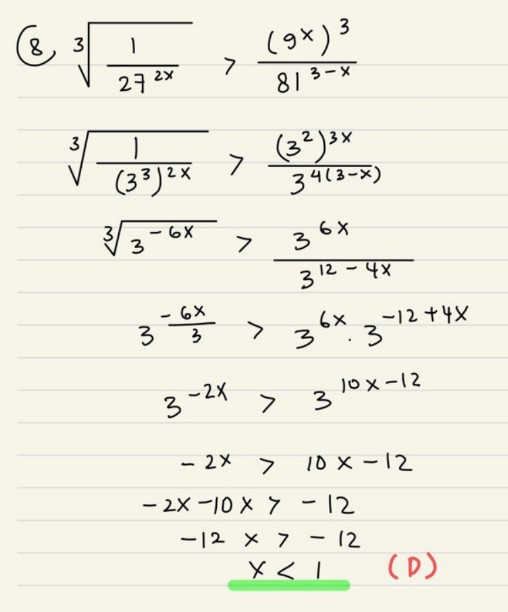 8. ∛(1 / 27^(2x)) > (9^x)^3 / 81^(3-x)
∛(1 / (3^3)^(2x)) > (3^2)^(3x) / 3^(4(3-x))
∛(3^(-6x)) > 3^(6x) / 3^(12-4x)
3^(-6x/3) > 3^(6x) . 3^(-12+4x)
3^(-2x) > 3^(10x-12)
-2x > 10x-12
-2x-10x > -12
-12x > -12
x < 1 (D)